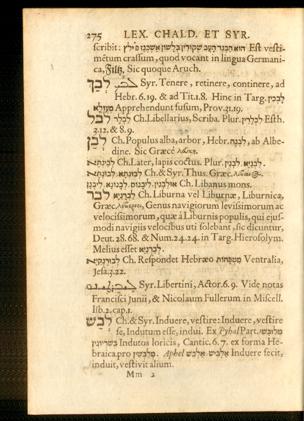 275 LEX. CHALD. ET SYR.
scribit: הוא הבגד העב שקורין בלשון אשכנז פילץ Est vesti-
mētum crassum, quod vocant in lingua Germani-
ca, Filtz. Sic quoque Aruch.
לבך Syr. Tenere, retinere, continere, ad
Hebr. 6.19. & ad Tit. 1.8. Hinc in Targ.
Apprehendunt fusum, Prov. 31.19.
לבל Ch. Libellarius, Scriba. Plur. Esth.
3.12. & 8.9.
לבן Ch. Populus alba, arbor, Hebr. לבנה, ab Albe-
dine. Sic Græcè
Ch. Later, lapis coctus. Plur.
Ch. & Syr. Thus. Græc.
Ch. Libanus mons.
לבר Ch. Liburna vel Liburnæ, Liburnica,
Græc. Genus navigiorum levissimorum ac
velocissimorum, quæ à Liburnis populis, qui ejus-
modi navigiis velocibus uti solebant, sic dicuntur,
Deut. 28.68. & Num. 24.24. in Targ. Hierosolym.
Melius esset
Ch. Respondet Hebræo Ventralia,
Jesa. 3.22.
Syr. Libertini, Actor. 6.9. Vide notas
Francisci Junii, & Nicolaum Fullerum in Miscell.
lib. 2. cap. 1.
לבש Ch. & Syr. Induere, vestire: Induere, vestire
se, Indutum esse, indui. Ex Pehal Part. מלובשי
בשריונין Indutos loricis, Cantic. 6.7. ex forma He-
braica. pro מלבשין. Aphel אלביש אלבש Induere fecit,
induit, vestivit alium.
Mm 2